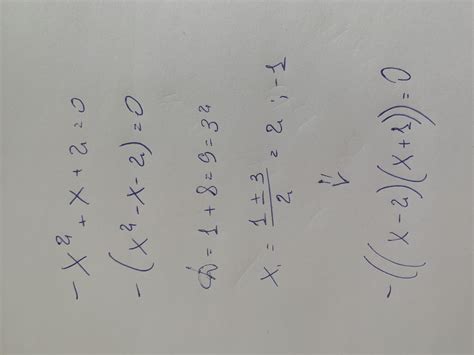 -x² + x + 2 = 0
-(x² - x - 2) = 0
D = 1 + 8 = 9 = 3²
x₁ = (1 ± 3)/2 = 2 ; -1
⇓
-((x - 2)(x + 1)) = 0